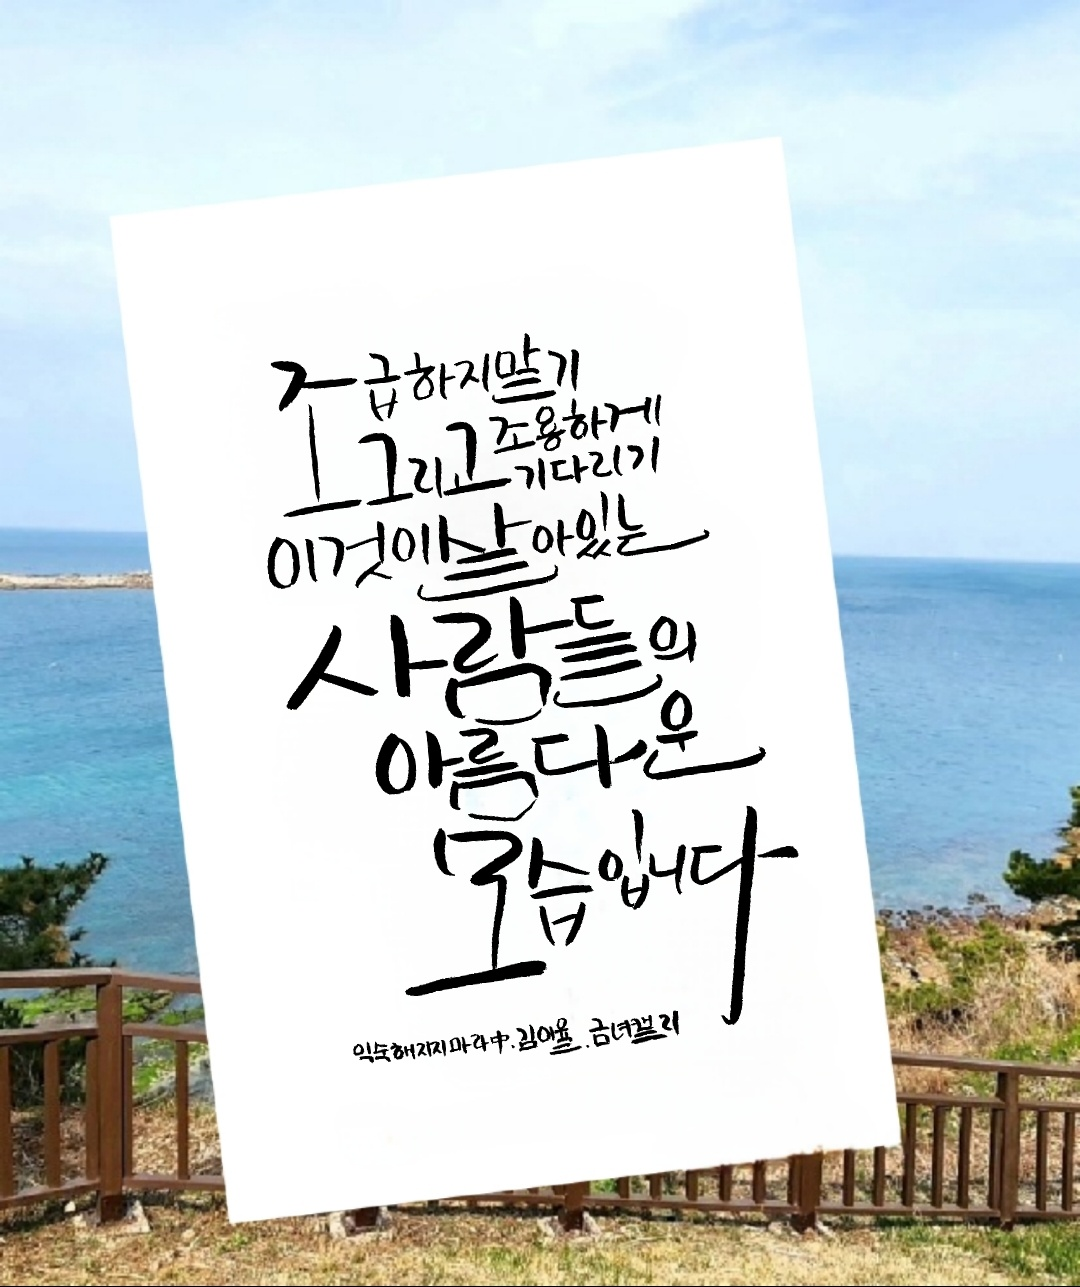 조급하지말기
그리고 조용하게
기다리기
이것이 살아있는
사람들의
아름다운
모습입니다
익숙해지지마라中.김이율.금녀캘리